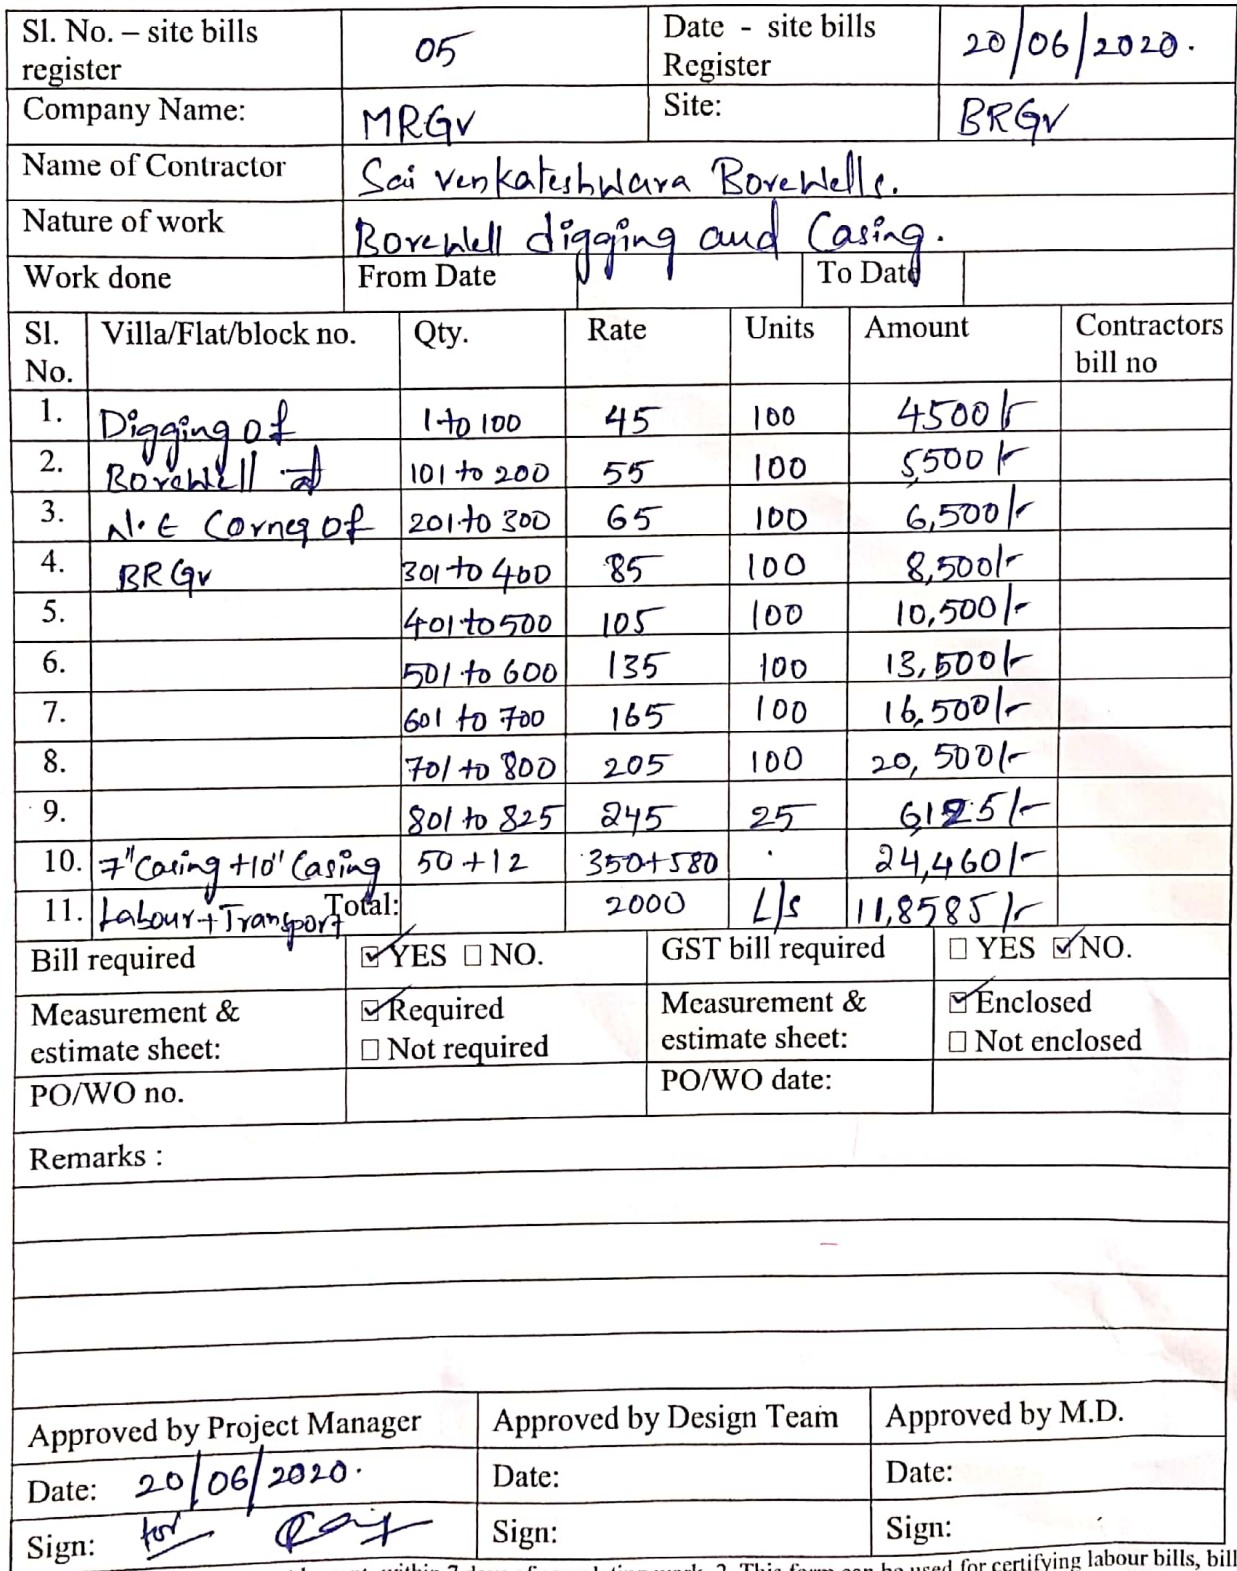 Sl. No. – site bills register 05 Date - site bills Register 20/06/2020.
Company Name: MRGV Site: BRGV
Name of Contractor Sai Venkateshwara Borewells.
Nature of work Borewell digging and Casing.
Work done From Date To Date
Sl. No. Villa/Flat/block no. Qty. Rate Units Amount Contractors bill no
1. Digging of 1 to 100 45 100 4500/-
2. Borewell at 101 to 200 55 100 5500/-
3. N.E Corner of 201 to 300 65 100 6,500/-
4. BRGV 301 to 400 85 100 8,500/-
5. 401 to 500 105 100 10,500/-
6. 501 to 600 135 100 13,500/-
7. 601 to 700 165 100 16,500/-
8. 701 to 800 205 100 20,500/-
9. 801 to 825 245 25 6125/-
10. 7" Casing +10" Casing 50+12 350+580 24,460/-
11. Labour+Transport Total: 2000 L/s 11,8585/-
Bill required ☑ YES ☐ NO. GST bill required ☐ YES ☑ NO.
Measurement & estimate sheet: ☑ Required ☐ Not required Measurement & estimate sheet: ☑ Enclosed ☐ Not enclosed
PO/WO no. PO/WO date:
Remarks :
Approved by Project Manager Approved by Design Team Approved by M.D.
Date: 20/06/2020. Date: Date:
Sign: for Sign: Sign:
within 7 days of completing work. 2. This form can be used for certifying labour bills, bill